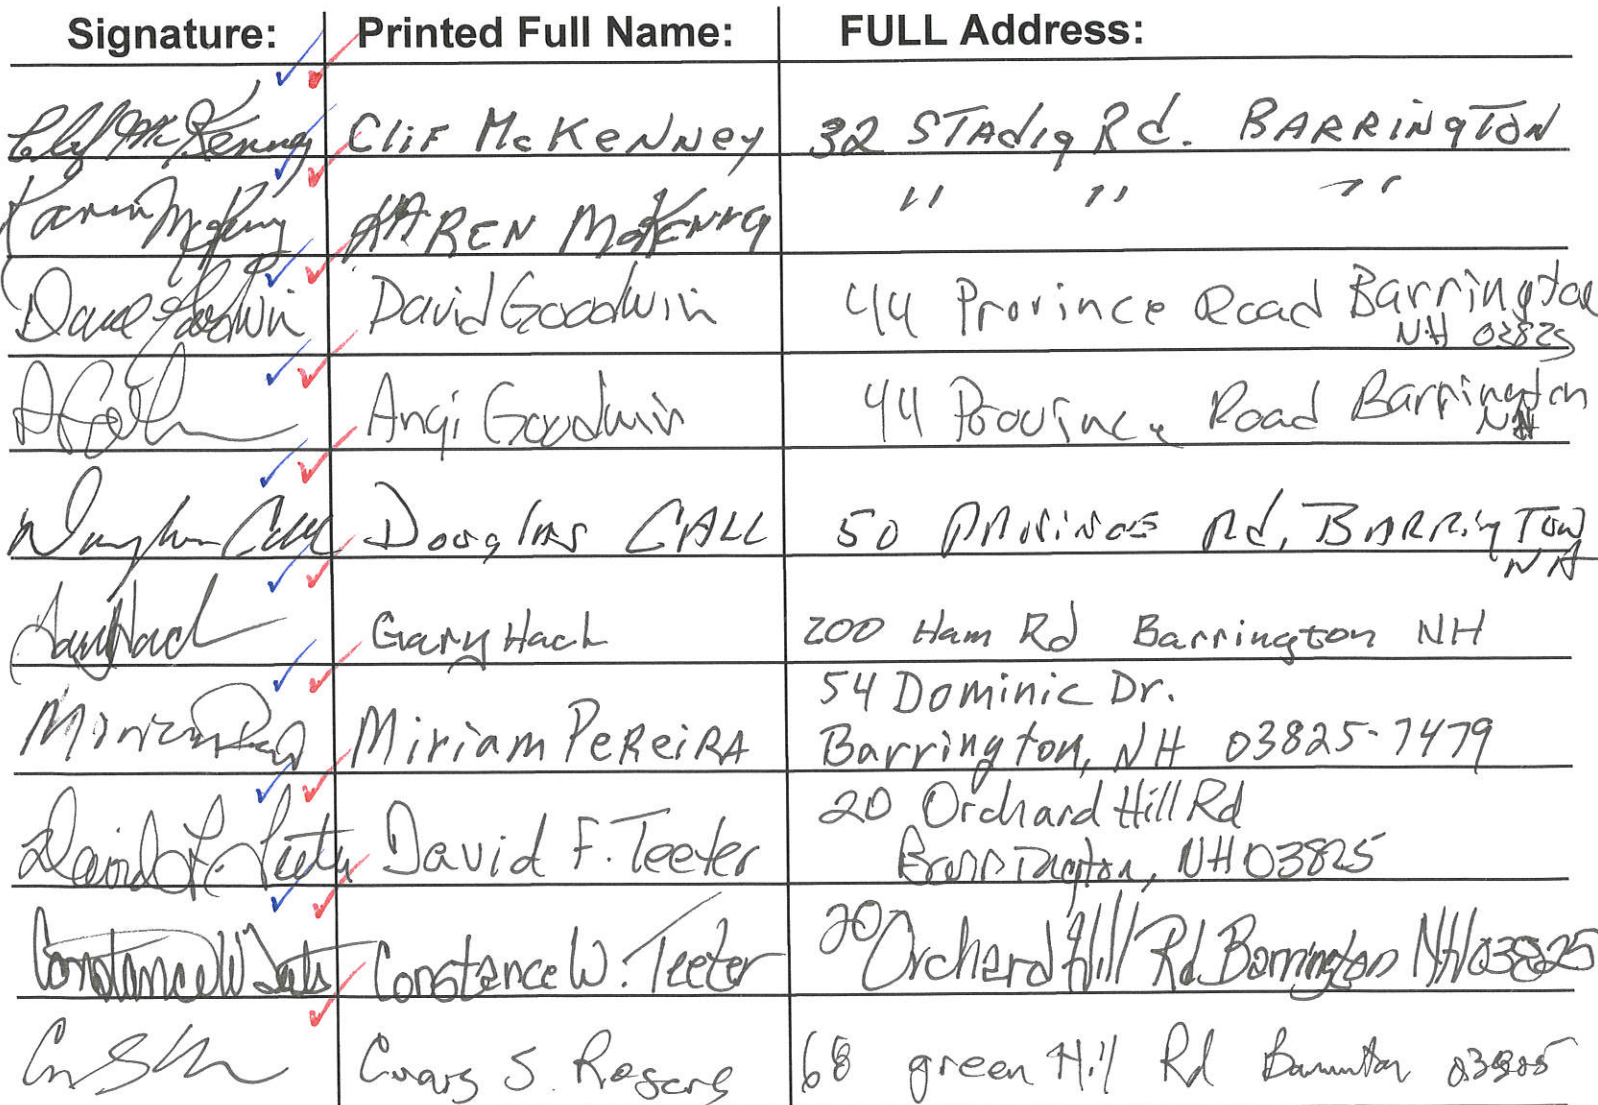 Signature: Printed Full Name: FULL Address:
Clif McKenney Clif McKenney 32 Stadig Rd. Barrington
Karen McKenney Karen McKenney " " "
Dave Goodwin David Goodwin 44 Province Road Barrington
NH 03825
Angi Goodwin 44 Province Road Barrington
NH
Douglas Call Douglas CALL 50 Province Rd, Barrington
NH
Gary Hach Gary Hach 200 Ham Rd Barrington NH
54 Dominic Dr.
Miriam Pereira Miriam Pereira Barrington, NH 03825-7479
20 Orchard Hill Rd
David F. Teeter David F. Teeter Barrington, NH 03825
Constance W Teeter Constance W. Teeter 20 Orchard Hill Rd Barrington NH 03825
Craig S. Rogers 68 green Hill Rd Barrington